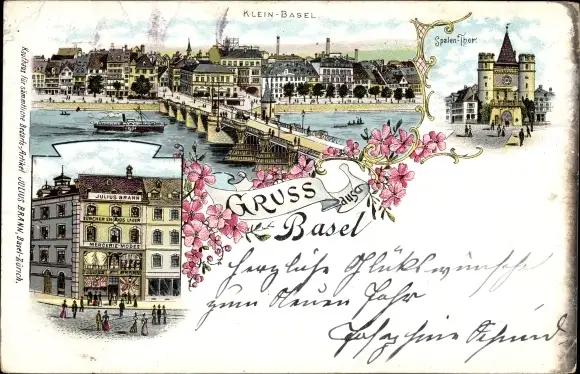 KLEIN-BASEL.
Spalen-Thor.
Kaufhaus für sämmtliche Bedarfs-Artikel JULIUS BRANN, Basel-Zürich.
JULIUS BRANN
ZÜRCHER ENGROS LAGER
MERCERIE MODES
GRUSS
aus
Basel
Herzliche Glückswünsche
zum Neuen Jahr
Josephine Schmid